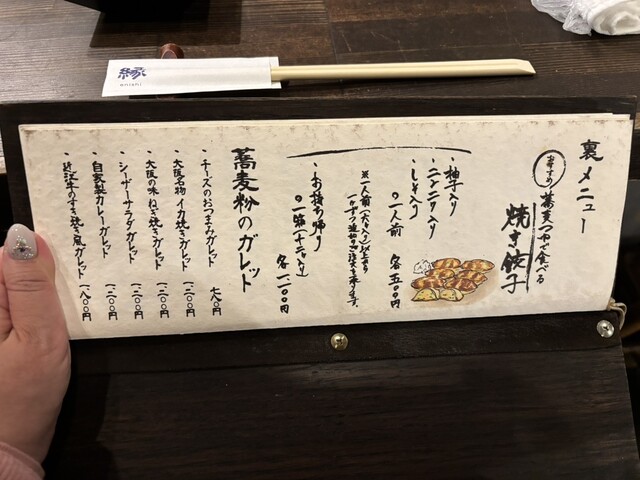 縁
enishi
裏メニュー
おすすめ
蕎麦つゆで食べる
焼き餃子
・柚子入り
・ニンニク入り
・しそ入り
○一人前 各五〇〇円
※一人前(六ヶ入)以上より
・お持ち帰り
○一箱(十二ヶ入り)
各一一〇〇円
蕎麦粉のガレット
・チーズのおつまみガレット 七八〇円
・大阪名物イカ焼きガレット 一二〇〇円
・大阪の味ねぎ焼きガレット 一二〇〇円
・シーザーサラダガレット 一二〇〇円
・自家製カレーガレット 一二〇〇円
・近江牛のすき焼き風ガレット 一八〇〇円